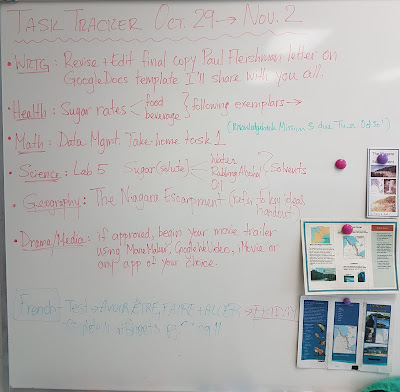 TASK TRACKER OCT. 29 → NOV. 2
• WRTG: Revise + Edit final copy Paul Flershman letter on
GoogleDocs template I'll share with you all.
• Health: Sugar rates < food
beverage } following exemplars →
(Knowledgehook Mission 5 due Tues. Oct 30!)
• Math: Data Mgmt. Take-home task 1
• Science: Lab 5 Sugar (solute) Water
Rubbing Alcohol
Oil } solvents
• Geography: The Niagara Escarpment (refer to key ideas
handout)
• Drama/Media: if approved, begin your movie trailer
using MovieMaker, CreateAVideo, iMovie or
any app of your choice.
French - Test → AVOIR, ÊTRE, FAIRE + ALLER → FRIDAY